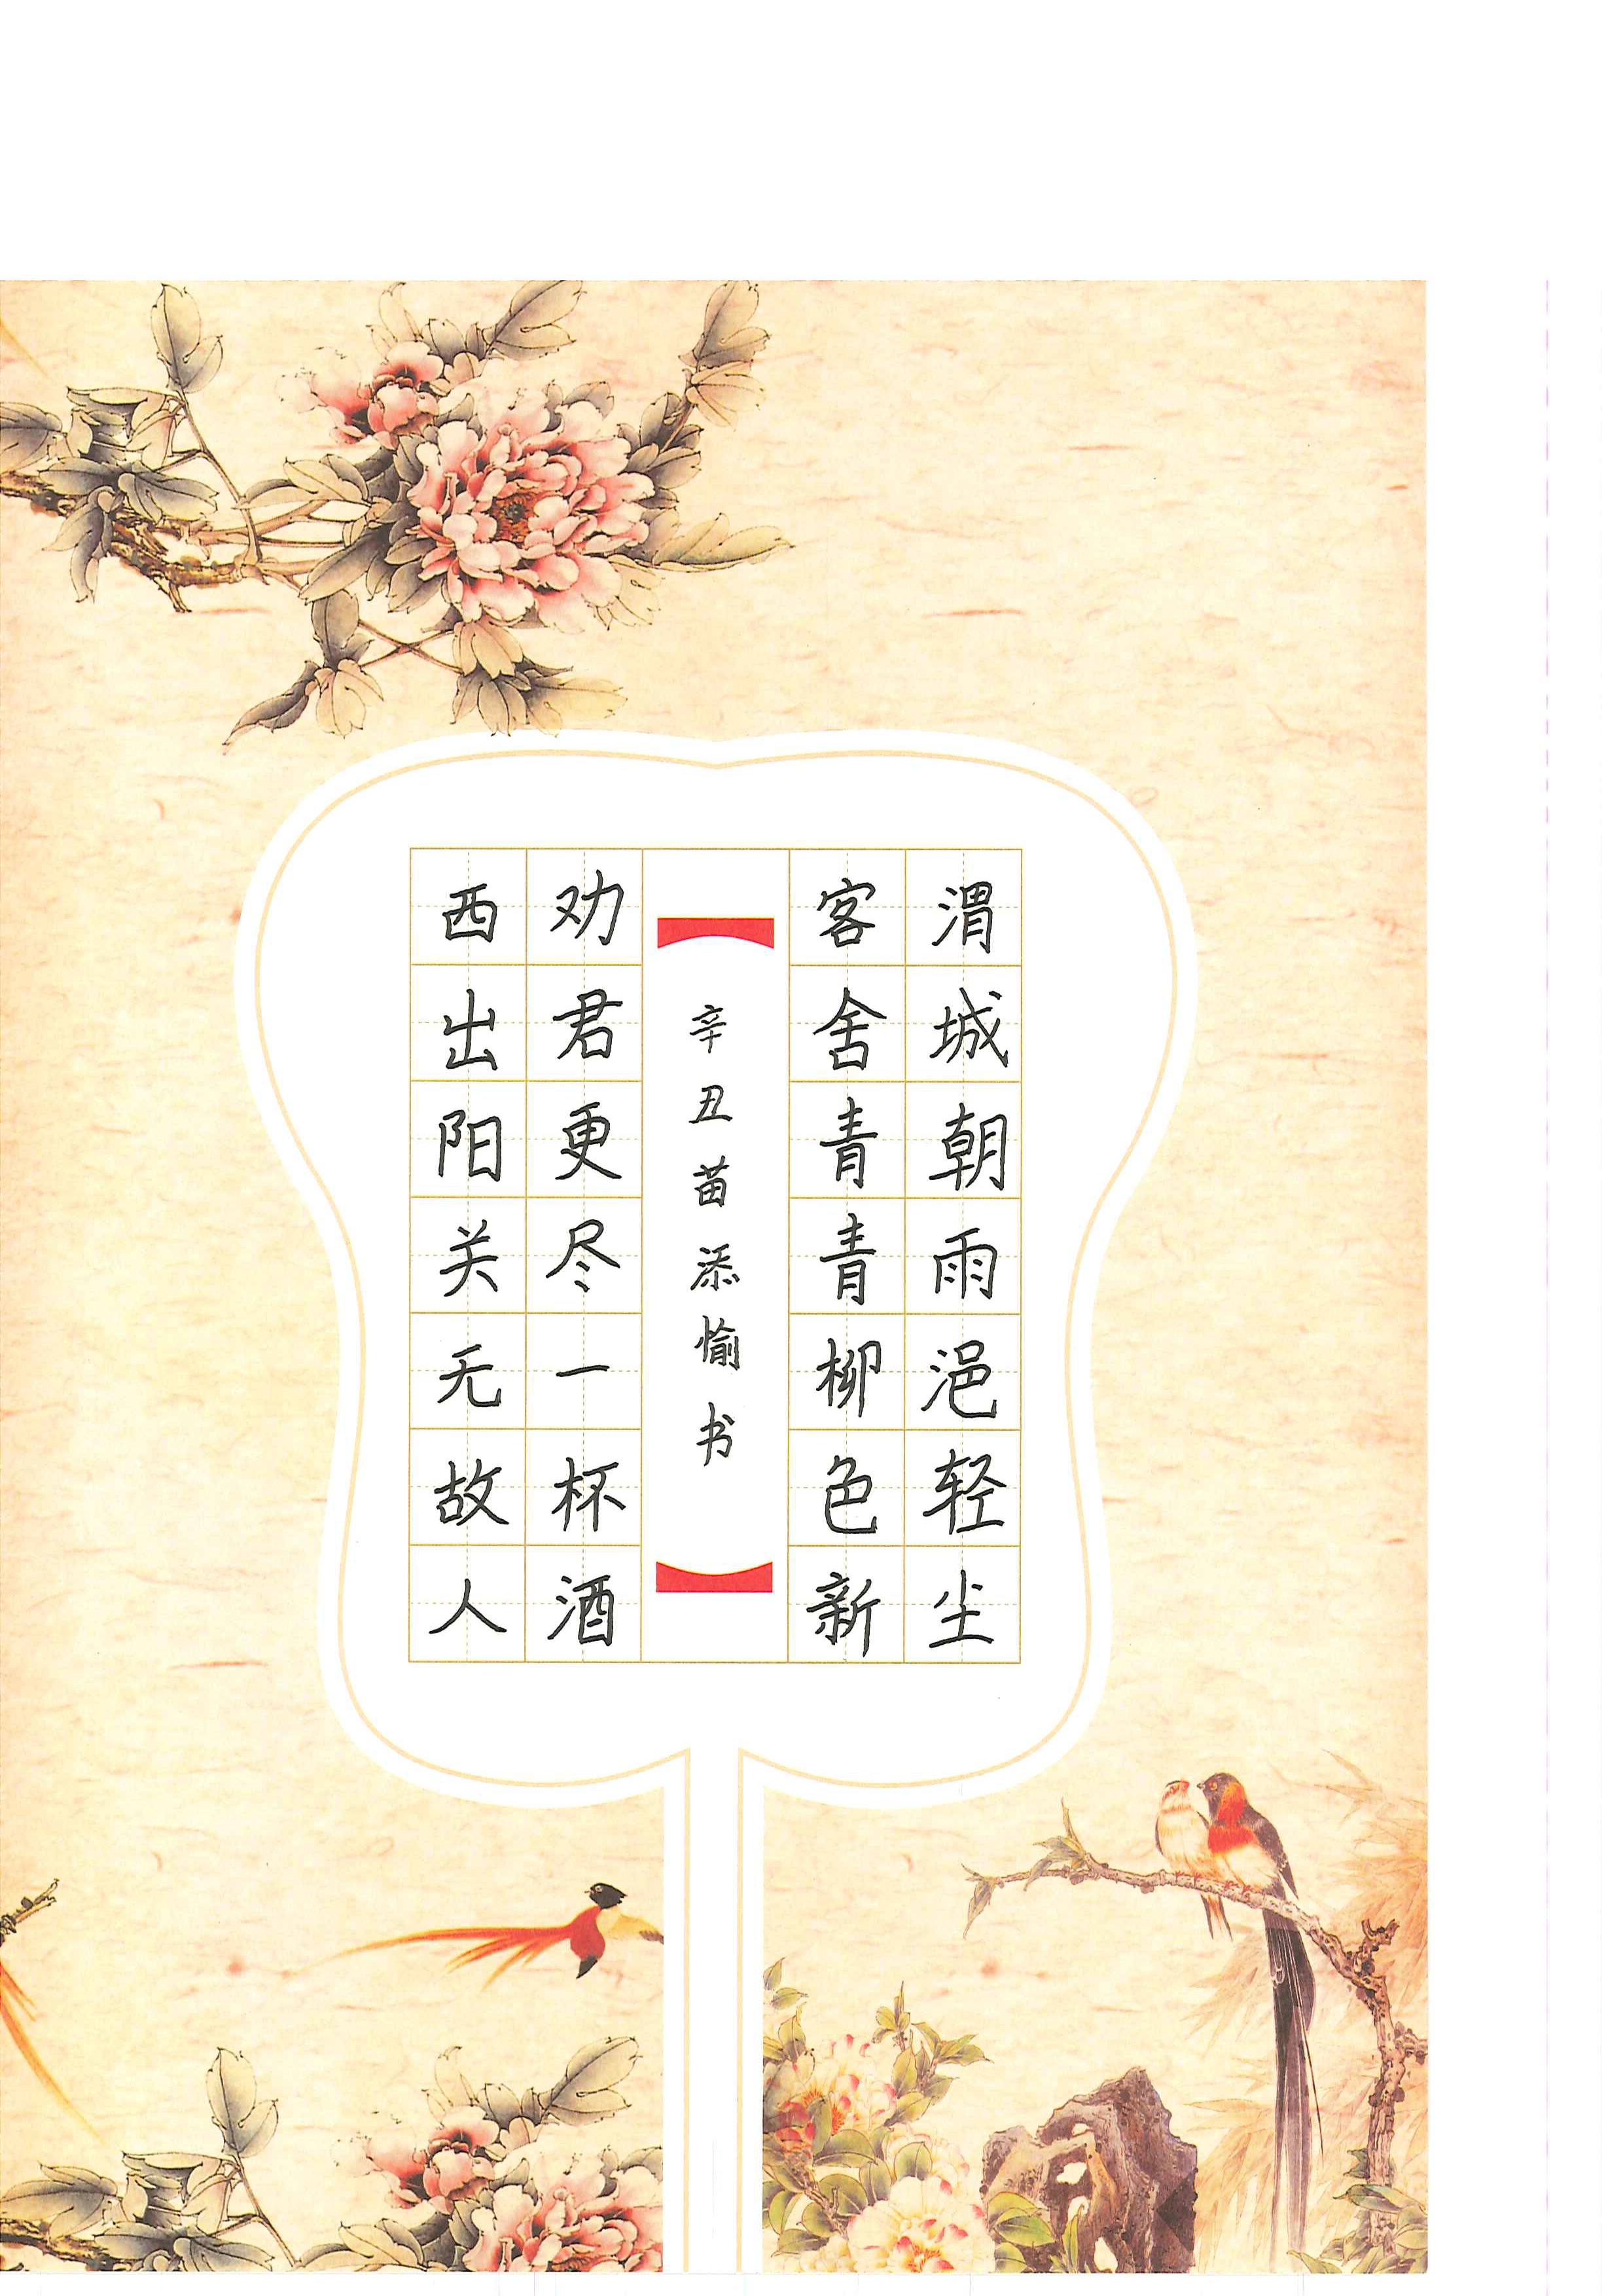 渭城朝雨浥轻尘
客舍青青柳色新
辛丑苗添愉书
劝君更尽一杯酒
西出阳关无故人